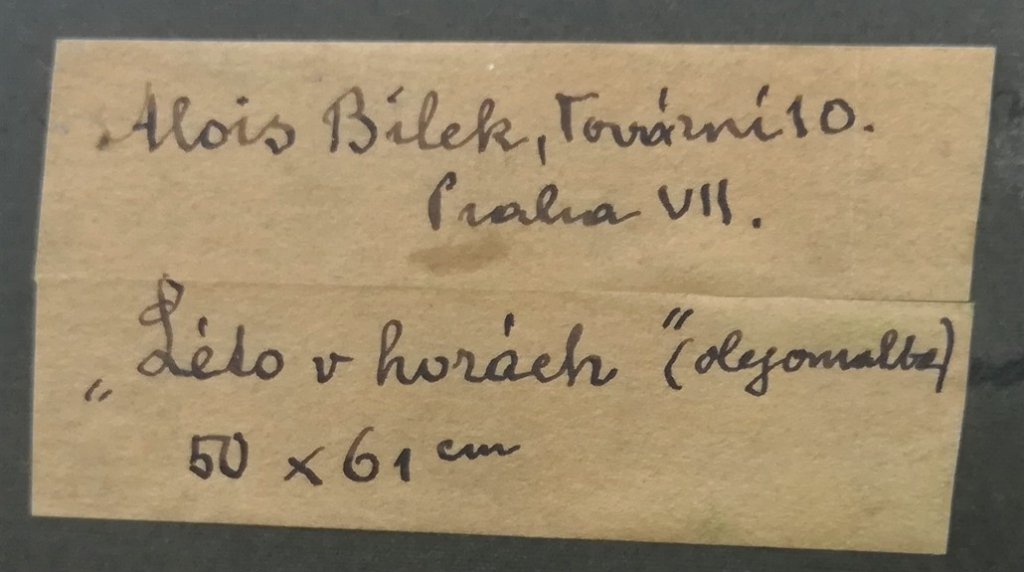 Alois Bílek, Tovární 10.
Praha VII.
„Léto v horách" (olejomalba)
50 x 61 cm